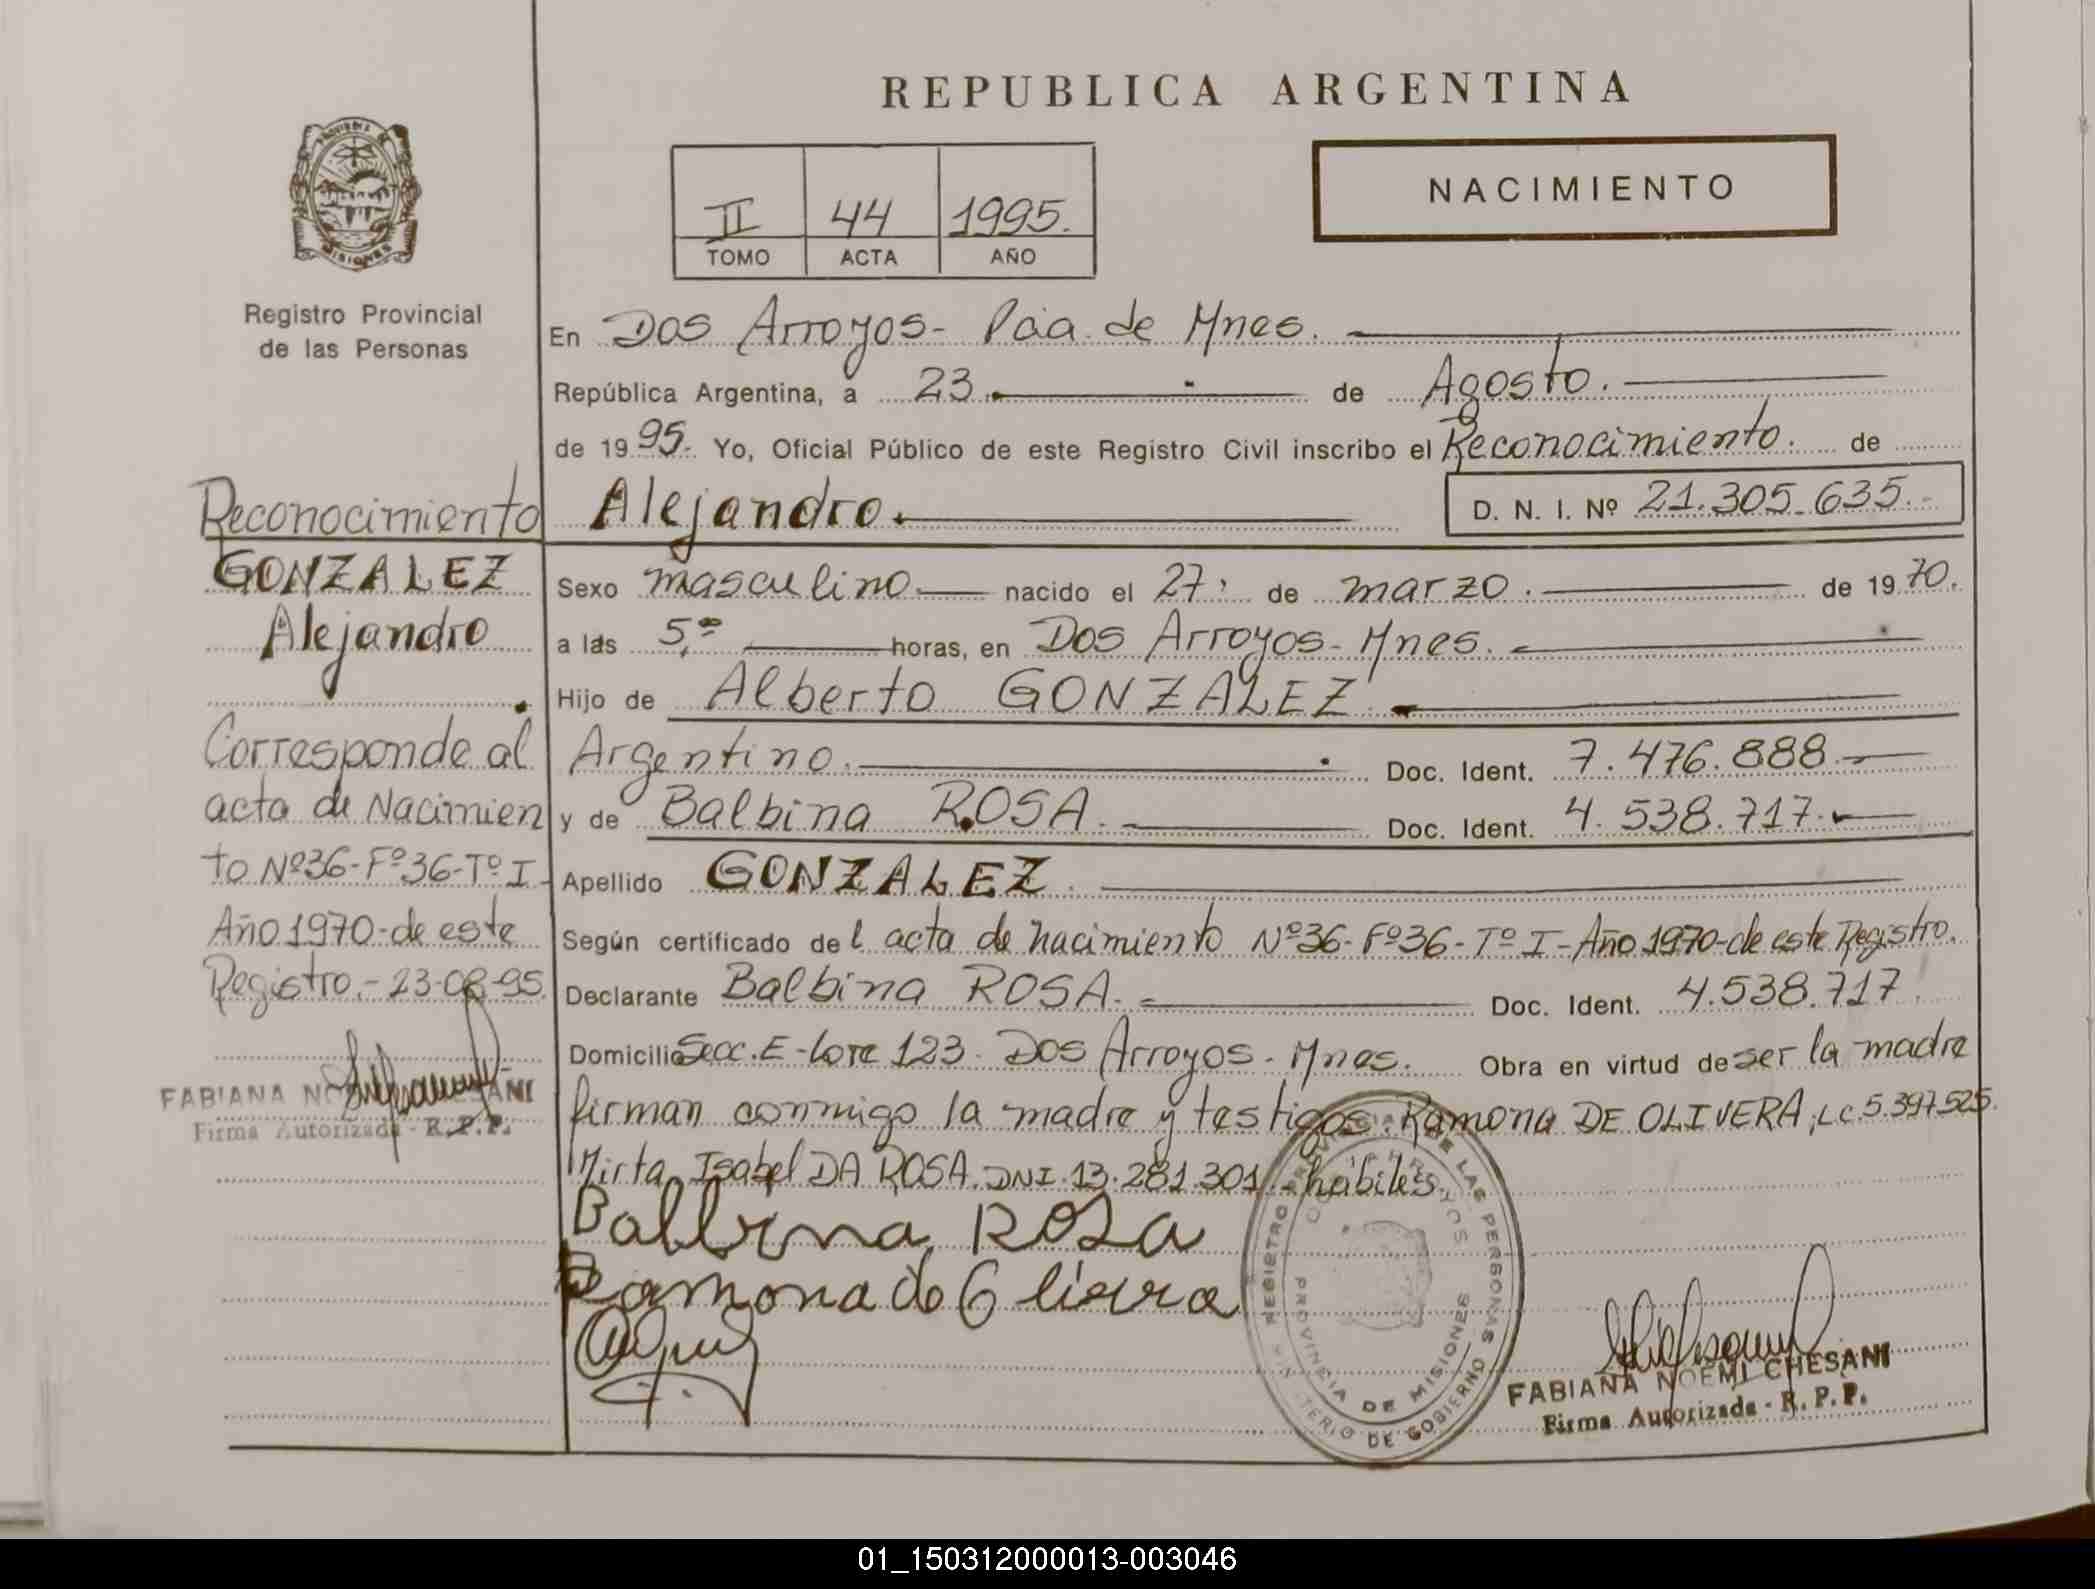 REPUBLICA ARGENTINA
NACIMIENTO
II 44 1995.
TOMO ACTA AÑO
PROVINCIA DE
MISIONES
Registro Provincial
de las Personas
En Dos Arroyos - Pcia. de Mnes.
República Argentina, a 23 de Agosto.
de 1995. Yo, Oficial Público de este Registro Civil inscribo el Reconocimiento. de
Alejandro. D. N. I. Nº 21.305.635.-
Sexo masculino nacido el 27 de marzo. de 1970.
a las 5,º horas, en Dos Arroyos - Mnes.
Hijo de Alberto GONZALEZ.
Argentino. Doc. Ident. 7.476.888.-
y de Balbina ROSA. Doc. Ident. 4.538.717.-
Apellido GONZALEZ.
Según certificado del acta de nacimiento Nº36-Fº36-Tº I-Año 1970-de este Registro.
Declarante Balbina ROSA. Doc. Ident. 4.538.717.
Domicilio Secc. E - Lote 123. Dos Arroyos - Mnes. Obra en virtud de ser la madre
firman conmigo la madre y testigos. Ramona DE OLIVERA, LC 5.397.525.
Mirta Isabel DA ROSA. DNI. 13.281.301 - hábiles.
Balbina Rosa
Ramona de Olivera
Reconocimiento
GONZALEZ
Alejandro
Corresponde al
acta de Nacimien
to Nº36-Fº36-Tº I-
Año 1970-de este
Registro.- 23-08-95.
FABIANA NOEMI CHESANI
Firma Autorizada - R.P.P.
REGISTRO PROVINCIAL DE LAS PERSONAS
MINISTERIO DE GOBIERNO
DOS ARROYOS
PROVINCIA DE MISIONES
FABIANA NOEMI CHESANI
Firma Autorizada - R. P. P.
01_150312000013-003046